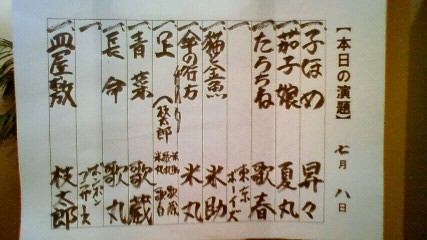 【本日の演題】 七月 八日
一 子ほめ 昇々
一 茄子娘 夏丸
一 たらちね 歌春
一 東京ボーイズ
一 猫と金魚 米助
一 傘の行方 米丸
一 口上
一 青菜 歌蔵
一 長命 歌丸
一 ボンボンブラザース
一 皿屋敷 枝太郎